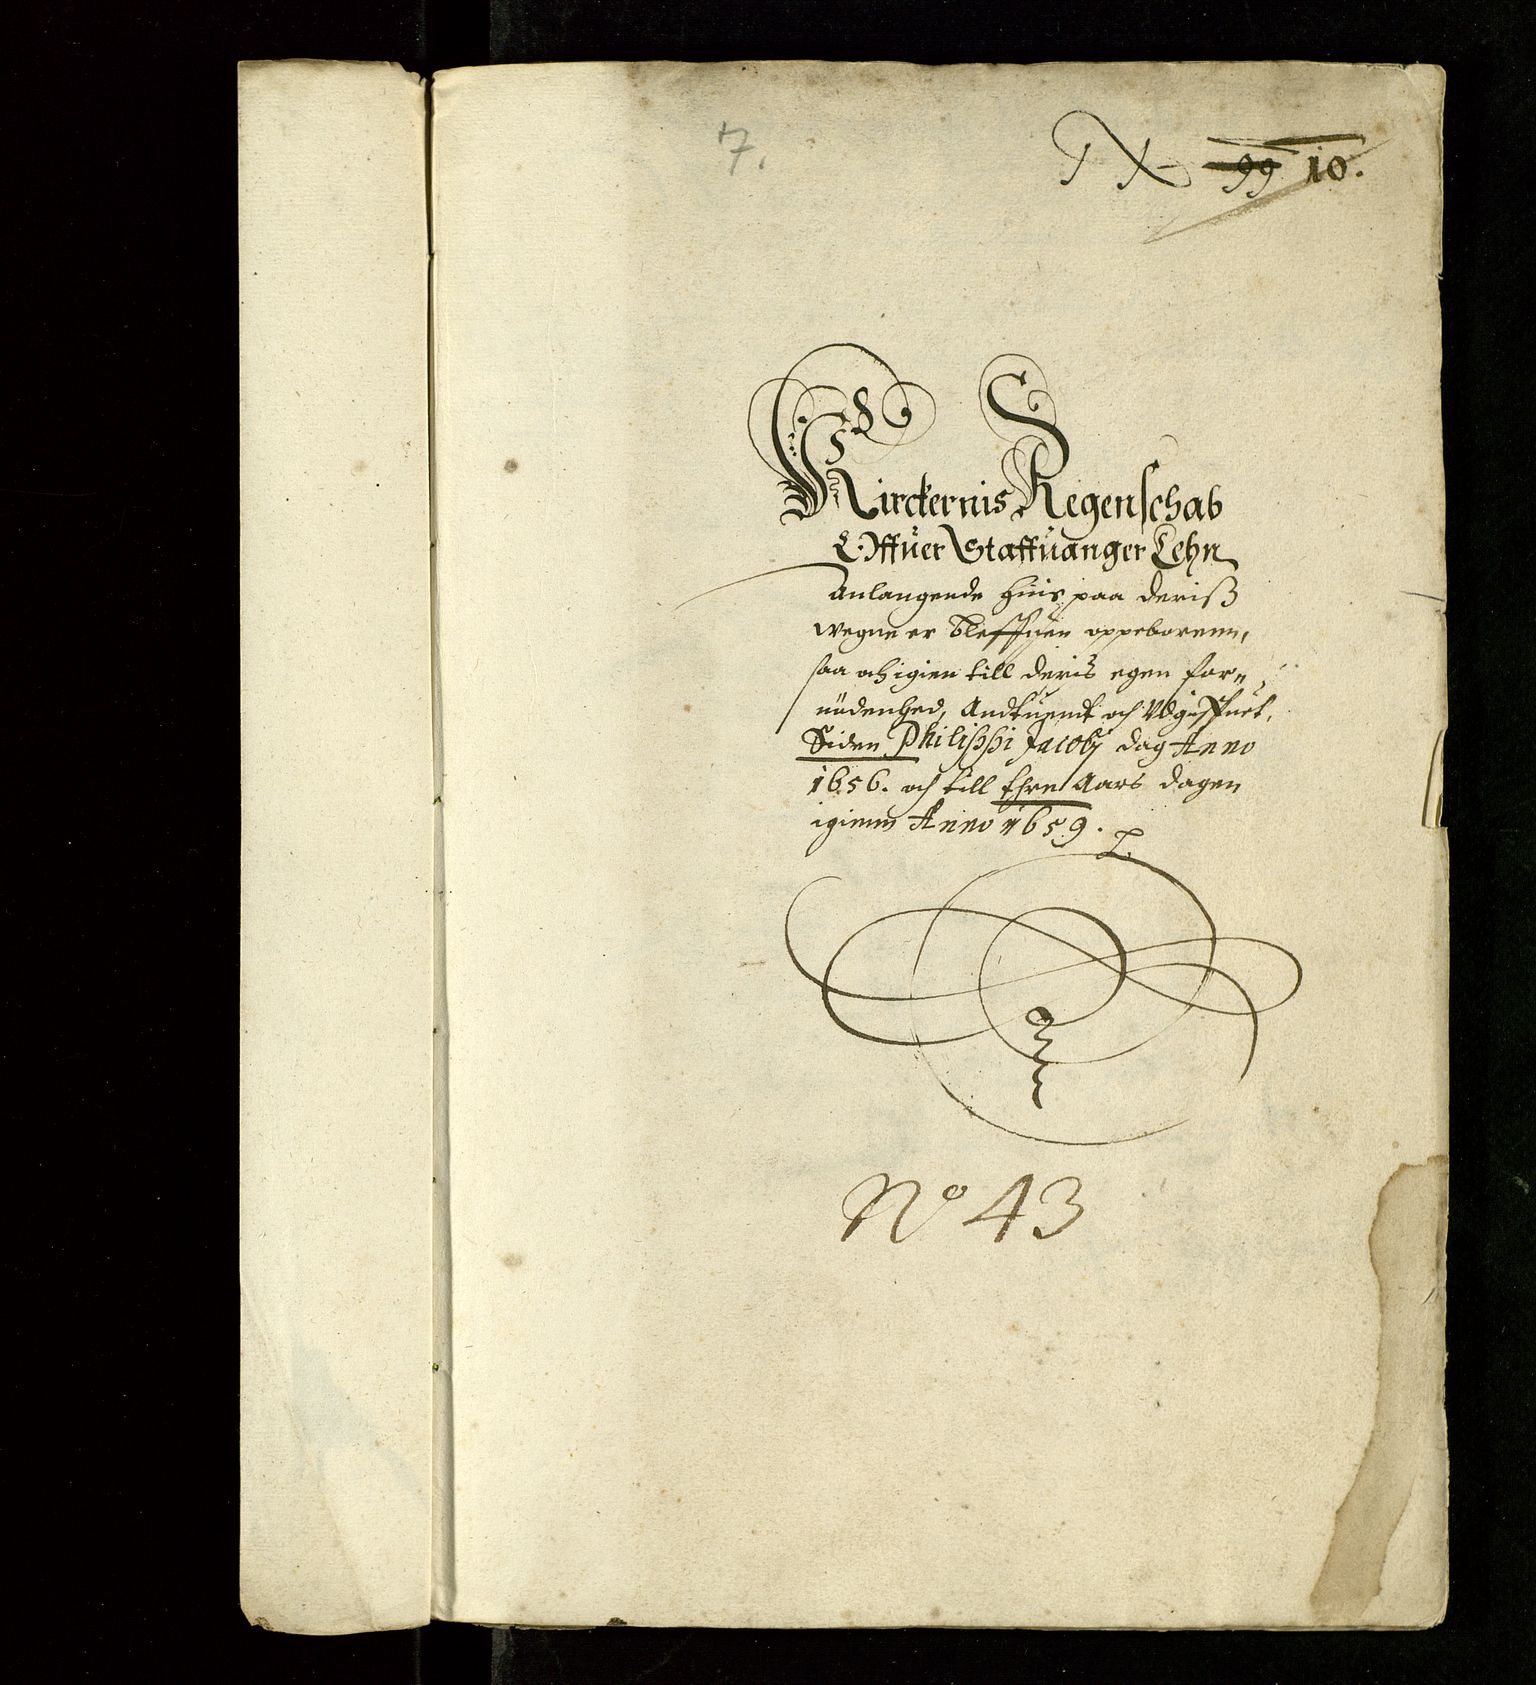 7.
IX 99 10.
Kirckernis Regenschab
Offuer Staffuanger Lehn
Anlangende huis paa deriß
wegne er bleffuen oppeborenn,
saa och igien till deris egen for-
nödenhed, Andtuendt och Udgiffuet,
Siden Philippi Jacobj dag Anno
1656. och till Ehre Aars dagen
igienn Anno 1659.
No 43